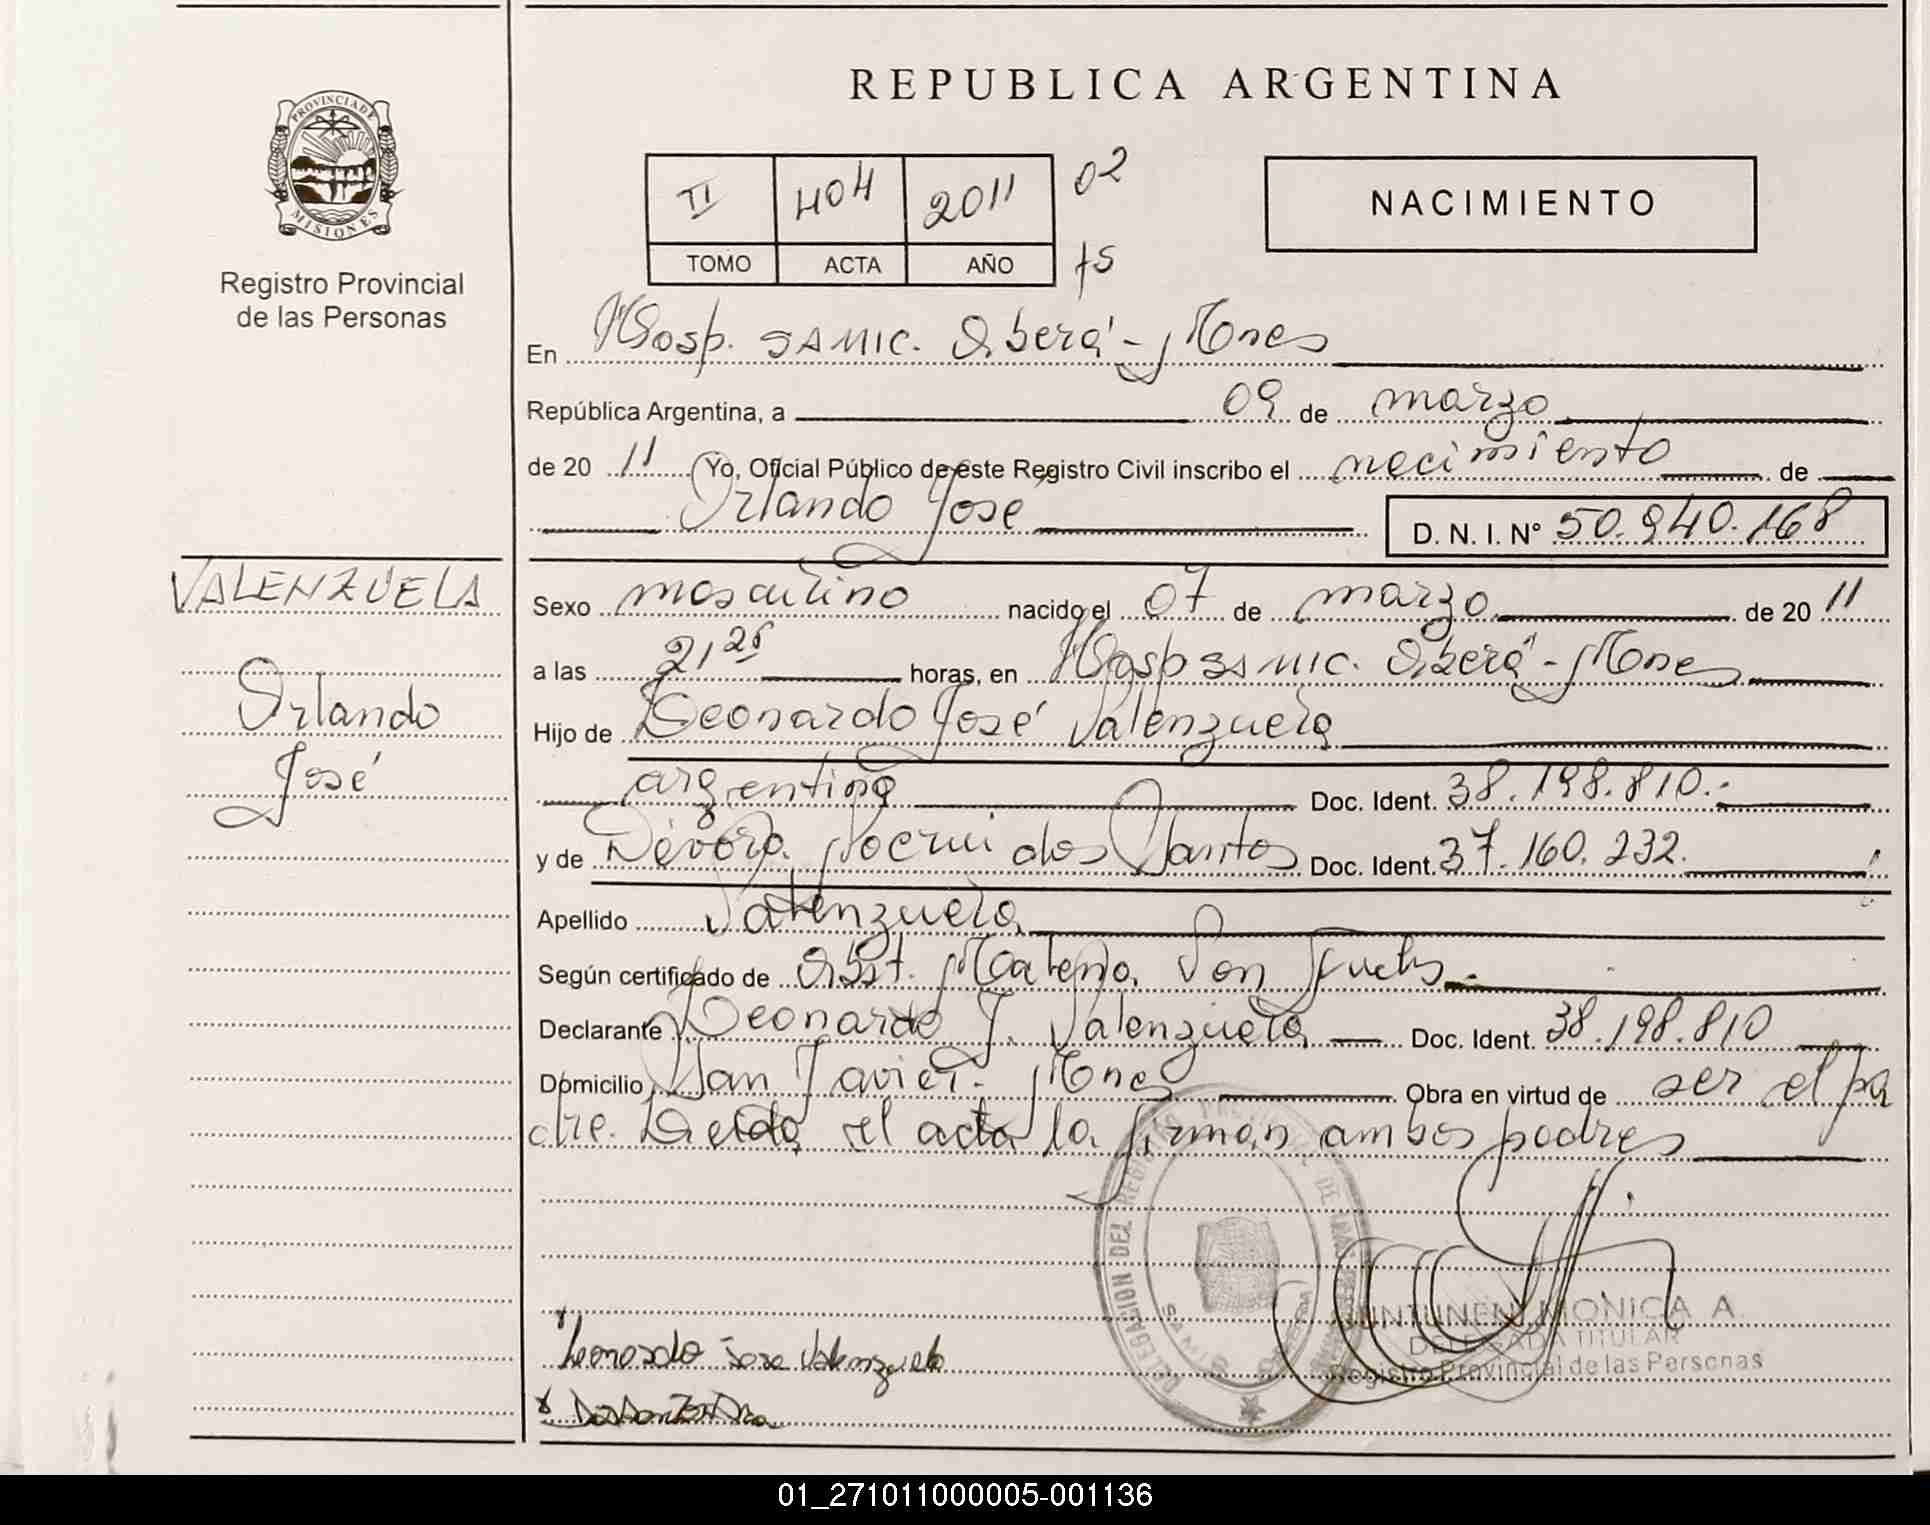 REPUBLICA ARGENTINA
PROVINCIA DE
MISIONES
Registro Provincial
de las Personas
II 404 2011 02
TOMO ACTA AÑO fs
NACIMIENTO
En Hosp. SAMIC. Oberá - Mnes
República Argentina, a 09 de marzo
de 20 11 Yo, Oficial Público de este Registro Civil inscribo el nacimiento de
Orlando José
D. N. I. Nº 50.940.168
VALENZUELA
Orlando
José
Sexo masculino nacido el 07 de marzo de 20 11
a las 21,26 horas, en Hosp SAMIC. Oberá - Mnes
Hijo de Leonardo José Valenzuela
argentina Doc. Ident. 38.198.810.-
y de Dévora Noemi dos Santos Doc. Ident. 37.160.232.
Apellido Valenzuela
Según certificado de Obst. Malena Von
Declarante Leonardo J. Valenzuela Doc. Ident. 38.198.810
Domicilio San Javier. Mnes Obra en virtud de ser el pa
dre. Leida el acta la firman ambos padres
Leonardo Jose Valenzuela
DELEGACION DEL REGISTRO PROVINCIAL DE LAS PERSONAS
MONICA A.
DELEGADA TITULAR
Registro Provincial de las Personas
01_271011000005-001136